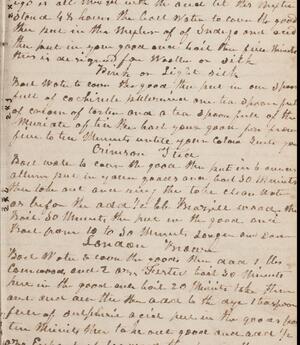 igo is all mixed with the acid let this mixture
stand 48 hours then boil Water to cover the goods
then put in the mixture of Indigo and acid
then put in your goods and boil five Minutes
this is designed for Woollen or Silk
Pink or Light Silk
Boil Water to cover the goods then put in one spoon
full of cochineal pulverised one tea spoon full
of cream of tartar and a tea spoon full of the
Muriate of tin then boil your goods from
five to ten Minutes untill your colour suits you
Crimson
Boil water to cover the goods then put in
allum put in your goods and boil 30 Minutes
then take out and ring then take clean Water
as before then add Brazille wood then
Boil 30 Minutes then put in the good and
Boil from 10 to 30 Minutes
London Brown
Boil Water to cover the goods then add 1 lbs
Camwood and 2 boil 30 Minutes
put in the good and boil 20 Minutes take them
and air then add to the dye 1 teaspoon
full of sulphuric acid put in the goods for
ten Minutes then take out good and add